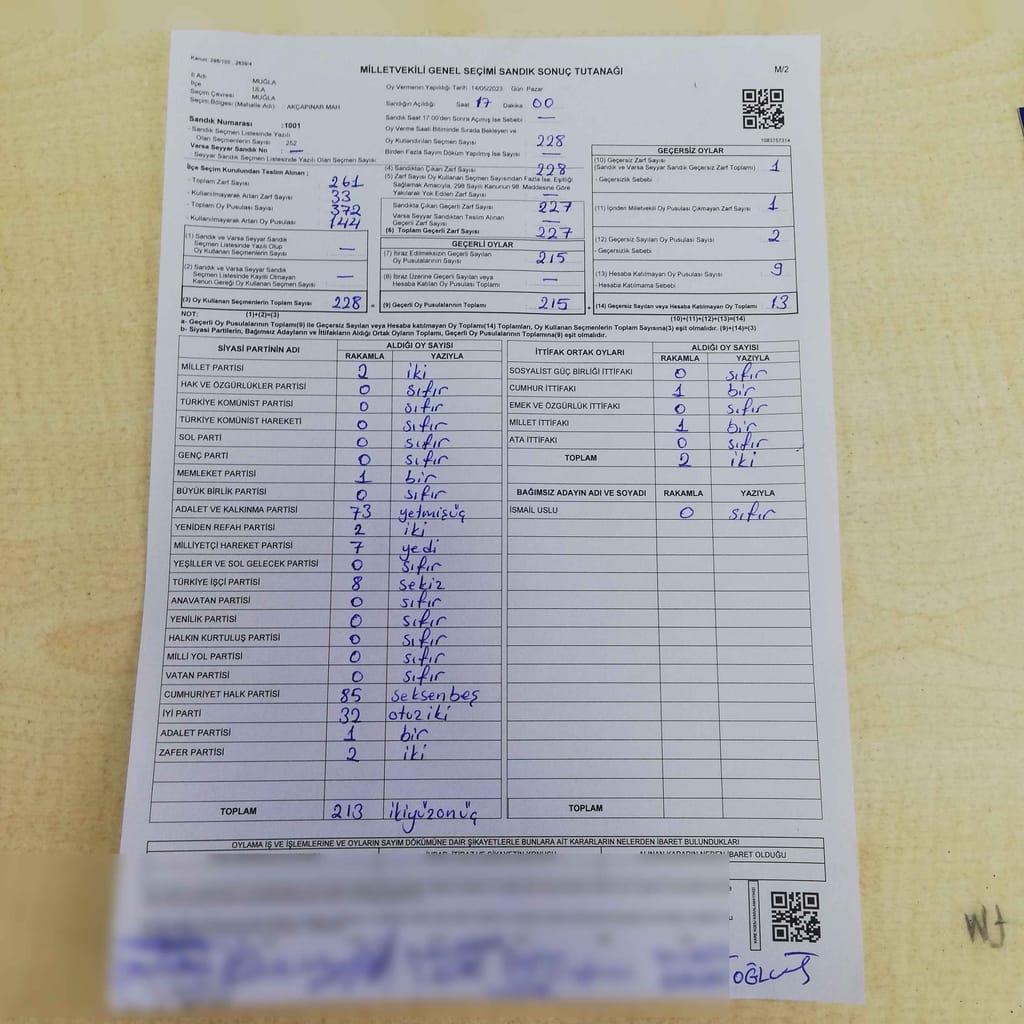 Kanun: 298/105 , 2839/4
MİLLETVEKİLİ GENEL SEÇİMİ SANDIK SONUÇ TUTANAĞI
M/2
İl Adı MUĞLA
İlçe ULA
Seçim Çevresi MUĞLA
Seçim Bölgesi (Mahalle Adı) : AKÇAPINAR MAH
Sandık Numarası :1001
- Sandık Seçmen Listesinde Yazılı
Olan Seçmenlerin Sayısı 252
Varsa Seyyar Sandık No : —
- Seyyar Sandık Seçmen Listesinde Yazılı Olan Seçmen Sayısı:
Oy Vermenin Yapıldığı Tarih: 14/05/2023 Gün Pazar
Sandığın Açıldığı: Saat 17 Dakika 00
Sandık Saat 17:00'den Sonra Açılmış İse Sebebi —
Oy Verme Saati Bitiminde Sırada Bekleyen ve
Oy Kullandırılan Seçmen Sayısı 228
Birden Fazla Sayım Döküm Yapılmış İse Sayısı —
1083757314
İlçe Seçim Kurulundan Teslim Alınan ;
- Toplam Zarf Sayısı 261
- Kullanılmayarak Artan Zarf Sayısı 33
- Toplam Oy Pusulası Sayısı 372
- Kullanılmayarak Artan Oy Pusulası 144
(1) Sandık ve Varsa Seyyar Sandık
Seçmen Listesinde Yazılı Olup
Oy Kullanan Seçmenlerin Sayısı —
(2) Sandık ve Varsa Seyyar Sandık
Seçmen Listesinde Kayıtlı Olmayan
Kanun Gereği Oy Kullanan Seçmen Sayısı —
(3) Oy Kullanan Seçmenlerin Toplam Sayısı 228 =
(4) Sandıktan Çıkan Zarf Sayısı 228
(5) Zarf Sayısı Oy Kullanan Seçmen Sayısından Fazla İse, Eşitliği
Sağlamak Amacıyla, 298 Sayılı Kanunun 98. Maddesine Göre
Yakılarak Yok Edilen Zarf Sayısı —
Sandıkta Çıkan Geçerli Zarf Sayısı 227
Varsa Seyyar Sandıktan Teslim Alınan
Geçerli Zarf Sayısı —
(6) Toplam Geçerli Zarf Sayısı 227
GEÇERLİ OYLAR
(7) İtiraz Edilmeksizin Geçerli Sayılan
Oy Pusulalarının Sayısı 215
(8) İtiraz Üzerine Geçerli Sayılan veya
Hesaba Katılan Oy Pusulaları Toplamı —
(9) Geçerli Oy Pusulalarının Toplamı 215 +
GEÇERSİZ OYLAR
(10) Geçersiz Zarf Sayısı
(Sandık ve Varsa Seyyar Sandık Geçersiz Zarf Toplamı) 1
- Geçersizlik Sebebi
(11) İçinden Milletvekili Oy Pusulası Çıkmayan Zarf Sayısı 1
(12) Geçersiz Sayılan Oy Pusulası Sayısı 2
- Geçersizlik Sebebi
(13) Hesaba Katılmayan Oy Pusulası Sayısı 9
- Hesaba Katılmama Sebebi
(14) Geçersiz Sayılan veya Hesaba Katılmayan Oy Toplamı 13
NOT: (1)+(2)=(3) (10)+(11)+(12)+(13)=(14)
a- Geçerli Oy Pusulalarının Toplamı(9) ile Geçersiz Sayılan veya Hesaba katılmayan Oy Toplamı(14) Toplamları, Oy Kullanan Seçmenlerin Toplam Sayısına(3) eşit olmalıdır. (9)+(14)=(3)
b- Siyasi Partilerin, Bağımsız Adayların ve İttifakların Aldığı Ortak Oyların Toplamı, Geçerli Oy Pusulalarının Toplamına(9) eşit olmalıdır.
SİYASİ PARTİNİN ADI ALDIĞI OY SAYISI
RAKAMLA YAZIYLA
MİLLET PARTİSİ 2 iki
HAK VE ÖZGÜRLÜKLER PARTİSİ 0 sıfır
TÜRKİYE KOMÜNİST PARTİSİ 0 sıfır
TÜRKİYE KOMÜNİST HAREKETİ 0 sıfır
SOL PARTİ 0 sıfır
GENÇ PARTİ 0 sıfır
MEMLEKET PARTİSİ 1 bir
BÜYÜK BİRLİK PARTİSİ 0 sıfır
ADALET VE KALKINMA PARTİSİ 73 yetmişüç
YENİDEN REFAH PARTİSİ 2 iki
MİLLİYETÇİ HAREKET PARTİSİ 7 yedi
YEŞİLLER VE SOL GELECEK PARTİSİ 0 sıfır
TÜRKİYE İŞÇİ PARTİSİ 8 sekiz
ANAVATAN PARTİSİ 0 sıfır
YENİLİK PARTİSİ 0 sıfır
HALKIN KURTULUŞ PARTİSİ 0 sıfır
MİLLİ YOL PARTİSİ 0 sıfır
VATAN PARTİSİ 0 sıfır
CUMHURİYET HALK PARTİSİ 85 seksenbeş
İYİ PARTİ 32 otuziki
ADALET PARTİSİ 1 bir
ZAFER PARTİSİ 2 iki
TOPLAM 213 ikiyüzonüç
İTTİFAK ORTAK OYLARI ALDIĞI OY SAYISI
RAKAMLA YAZIYLA
SOSYALİST GÜÇ BİRLİĞİ İTTİFAKI 0 sıfır
CUMHUR İTTİFAKI 1 bir
EMEK VE ÖZGÜRLÜK İTTİFAKI 0 sıfır
MİLLET İTTİFAKI 1 bir
ATA İTTİFAKI 0 sıfır
TOPLAM 2 iki
BAĞIMSIZ ADAYIN ADI VE SOYADI RAKAMLA YAZIYLA
İSMAİL USLU 0 sıfır
TOPLAM
OYLAMA İŞ VE İŞLEMLERİNE VE OYLARIN SAYIM DÖKÜMÜNE DAİR ŞİKAYETLERLE BUNLARA AİT KARARLARIN NELERDEN İBARET BULUNDUKLARI
ALINAN KARARIN NEDEN İBARET OLDUĞU